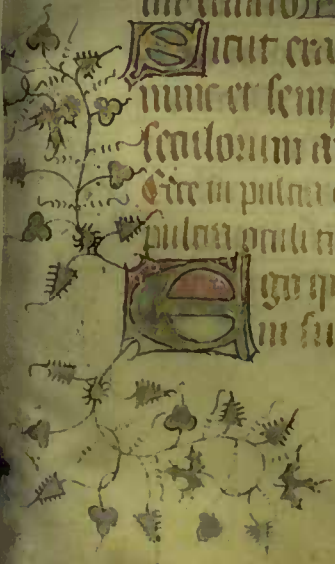 Sicut era
nunc et semp
seculorum a
Ecce tu pulcra
pulcra oculi t
Ego q